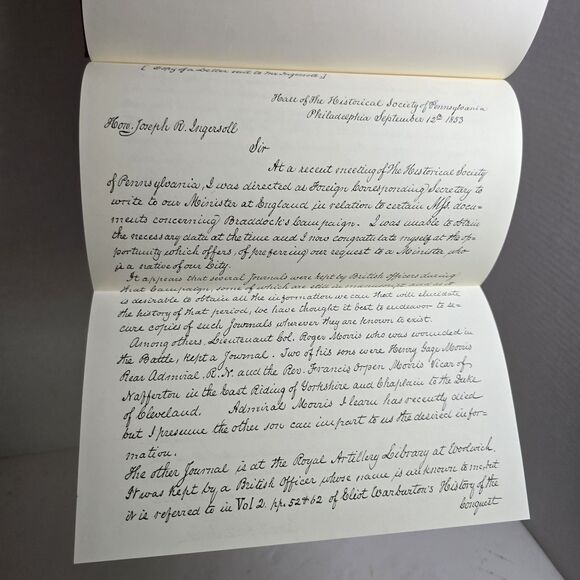 [Copy of a Letter sent to Mr Ingersoll;]
Hall of The Historical Society of Pennsylvania
Philadelphia September 12th 1853
Hon. Joseph R. Ingersoll
Sir
At a recent meeting of The Historical Society
of Pennsylvania, I was directed as Foreign Corresponding Secretary to
write to our Minister at England in relation to certain Mss. docu-
ments concerning Braddock's Campaign. I was unable to obtain
the necessary data at the time and I now congratulate myself at the op-
portunity which offers, of preferring our request to a Minister who
is a native of our City.
It appears that several Journals were kept by British officers during
that Campaign, some of which are still in manuscript and as it
is desirable to obtain all the information we can that will elucidate
the history of that period, we have thought it best to endeavor to se-
cure copies of such Journals wherever they are known to exist.
Among others, Lieutenant Col. Roger Morris who was wounded in
the Battle, kept a Journal. Two of his sons were Henry Gage Morris
Rear Admiral, R.N. and the Rev. Francis Orpen Morris Vicar of
Nafferton in the East Riding of Yorkshire and Chaplain to the Duke
of Cleveland. Admiral Morris I learn has recently died
but I presume the other son can impart to us the desired infor-
mation.
The other Journal is at the Royal Artillery Library at Woolwich.
It was kept by a British Officer whose name is unknown to me, but
it is referred to in Vol 2. pp. 52 & 62 of Eliot Warburton's History of the
Conquest